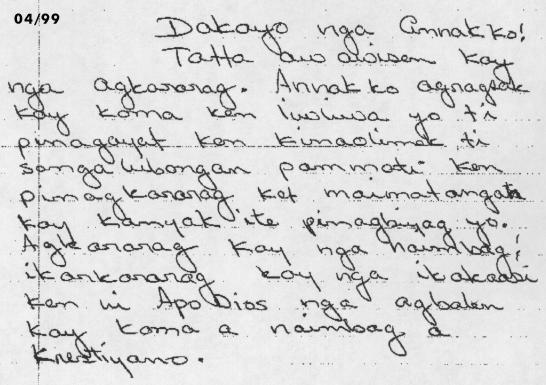 04/99
Dakayo nga annakko!
Tatta aw awisen kay
nga agkararag. Annak ko agragsak
kay koma ken liwliwa yo ti
pinagayat ken kinaolimek ti
sangalubongan pammati ken
pinagkararag ket maimatangak
kay kanyak iti pinagbiyag yo.
Agkararag kay nga naimbag!
ikarkararag kay nga ikakaasi
ken ni Apo Dios nga agbalin
kay koma a naimbag a
kristiyano.